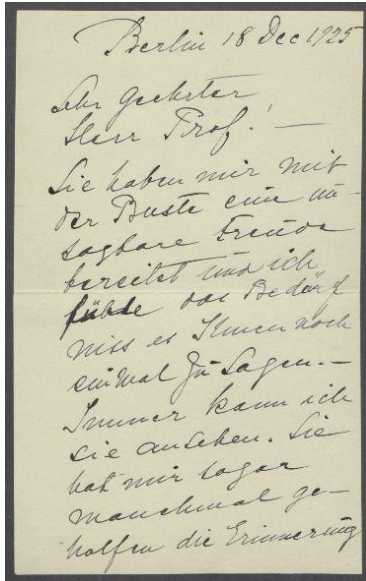 Berlin 18 Dec 1925
Sehr geehrter
Herr Prof.! —
Sie haben mir mit
der Buste eine un-
sagbare Freude
bereitet und ich
fühle das Bedürf
niss es Ihnen noch
einmal zu sagen. —
Immer kann ich
sie ansehen. Sie
hat mir sogar
manchmal ge-
holfen die Erinnerung